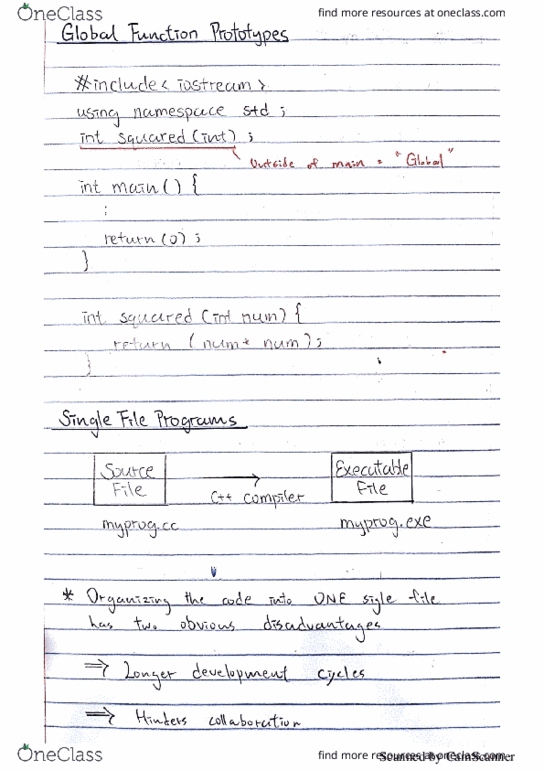 OneClass
find more resources at oneclass.com
Global Function Prototypes
#include < iostream >
using namespace std ;
int squared (int) ;
Outside of main = "Global"
int main () {
:
return (0) ;
}
int squared (int num) {
return ( num * num ) ;
}
Single File Programs
Source
File
C++ compiler
Executable
File
myprog.cc
myprog.exe
* Organizing the code into ONE sigle file
has two obvious disadvantages
⇒ Longer development cycles
⇒ Hinders collaboration
OneClass
find more resources at oneclass.com
Scanned by CamScanner